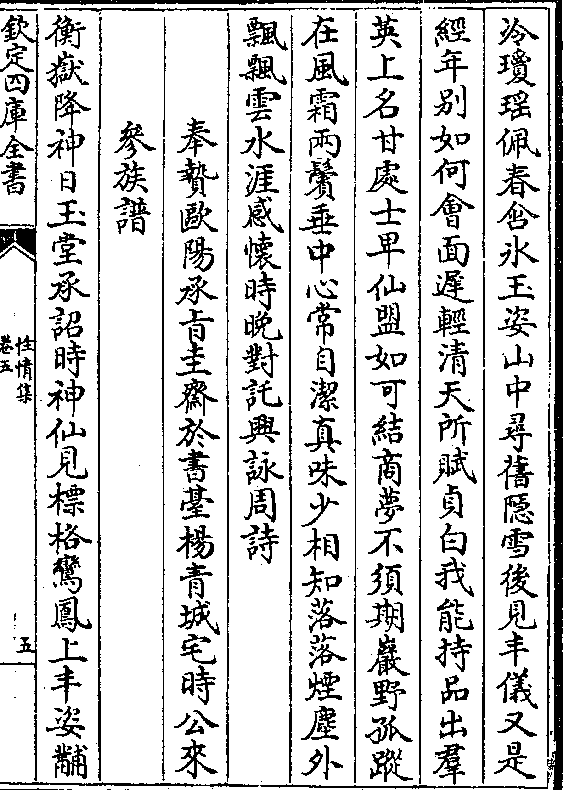 泠瓊瑶佩春含氷玉姿山中尋舊隠雪後見丰儀又是
經年别如何會面遲輕清天所賦貞白我能持品出羣
英上名甘處士卑仙盟如可結商夢不須期巖野孤蹤
在風霜兩鬢垂中心常自潔真味少相知落落煙塵外
飄飄雲水涯感懷時晚對託興詠周詩
奉贄歐陽承㫖圭齋於書臺楊青城宅時公來
參族譜
衡嶽降神日玉堂承詔時神仙見標格鸞鳳上丰姿黼
欽定四庫全書
性情集
卷五
五